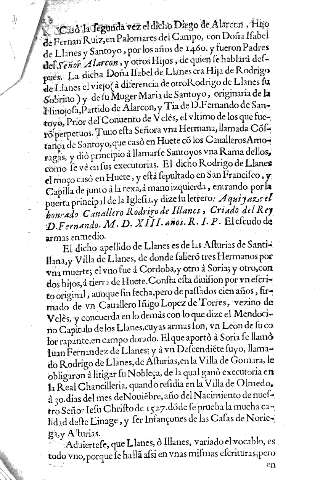 Casò la segunda vez el dicho Diego de Alarcon, Hijo
de Fernan Ruiz, en Palomares del Campo, con Doña Isabel
de Llanes y Santoyo, por los años de 1460. y fueron Padres
del Señor Alarcon, y otros Hijos, de quien se hablarà des-
pues. La dicha Doña Isabel de Llanes era Hija de Rodrigo
de Llanes el viejo (à diferencia de otro Rodrigo de Llanes su
Sobrino) y de su Muger Maria de Santoyo, originaria de la
Hinojosa, Partido de Alarcon, y Tia de D. Fernando de San-
toyo, Prior del Conuento de Vclès, el vltimo de los que fue-
rõ perpetuos. Tuuo esta Señora vna Hermana, llamada Cõs-
tança de Santoyo, que casò en Huete cõ los Caualleros Amo-
ragas, y diò principio à llamarse Santoyos vna Rama dellos,
como se vè en sus executorias. El dicho Rodrigo de Llanes
el moço casò en Huete, y està sepultado en San Francisco, y
Capilla de junto à la rexa, à mano izquierda, entrando por la
puerta principal de la Iglesia, y dize su letrero: Aqui jaze el
honrado Cauallero Rodrigo de Illanes, Criado del Rey
D. Fernando. M. D. XIII. años. R. I. P. El escudo de
armas en medio.
El dicho apellido de Llanes es de las Asturias de Santi-
llana, y Villa de Llanes, de donde salierõ tres Hermanos por
vna muerte; el vno fue à Cordoua, y otro à Soria; y otro, con
dos hijos, à tierra de Huete. Consta esta diuision por vn escri-
to original, aunque sin fecha, pero de passados cien años, fir-
mado de vn Cauallero Iñigo Lopez de Torres, vezino de
Velès, y concuerda en lo demàs con lo que dize el Mendoci-
no Capitulo de los Llanes, cuyas armas son, vn Leon de su co
lor rapante, en campo dorado. El que aportò à Soria se llamò
Iuan Fernandez de Llanes; y à vn Descendiẽte suyo, llama-
do Rodrigo de Llanes, de Asturias, en la Villa de Gomara, le
obligaron à litigar su Nobleza, de la qual ganò executoria en
la Real Chancilleria, quando residia en la Villa de Olmedo,
à 30. dias del mes de Nouiẽbre, año del Nacimiento de nues-
tro Señor Iesu Christo de 1527. dõde se prueba la mucha ca-
lidad deste Linage, y ser Infançones de las Casas de Norie-
ga, y Asturias.
Aduiertese, que Llanes, ò Illanes, variado el vocablo, es
todo vno, porque se hallã assi en vnas mismas escrituras, pero
en